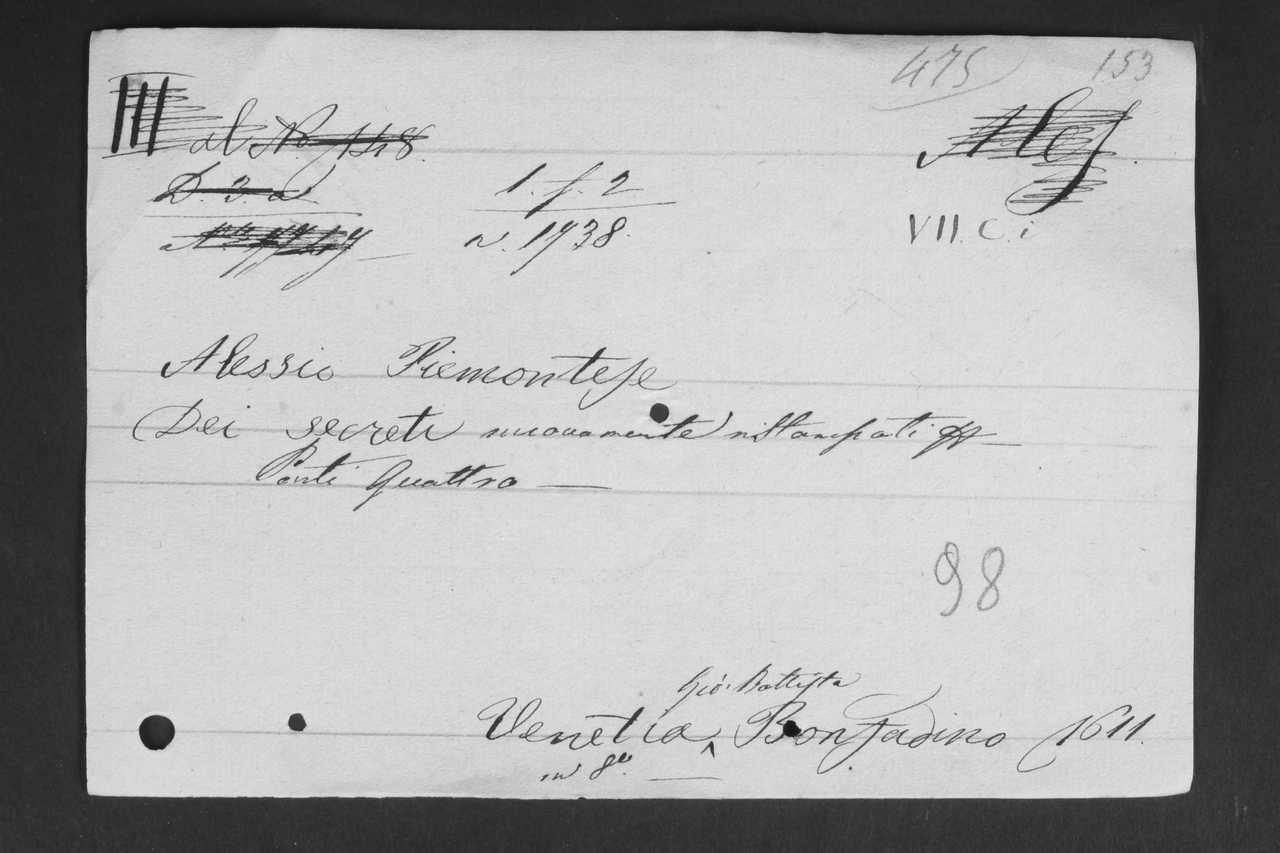 475 153
III al No 1418. Ales.
D. 3. a 1. f. 2
n. 1738. VII. C. i
Alessio Piemontese
Dei secreti nuovamente ristampati
Parti Quattro —
98
Gio: Battista
Venetia ^ Bonfadino 1611.
in 8º. —